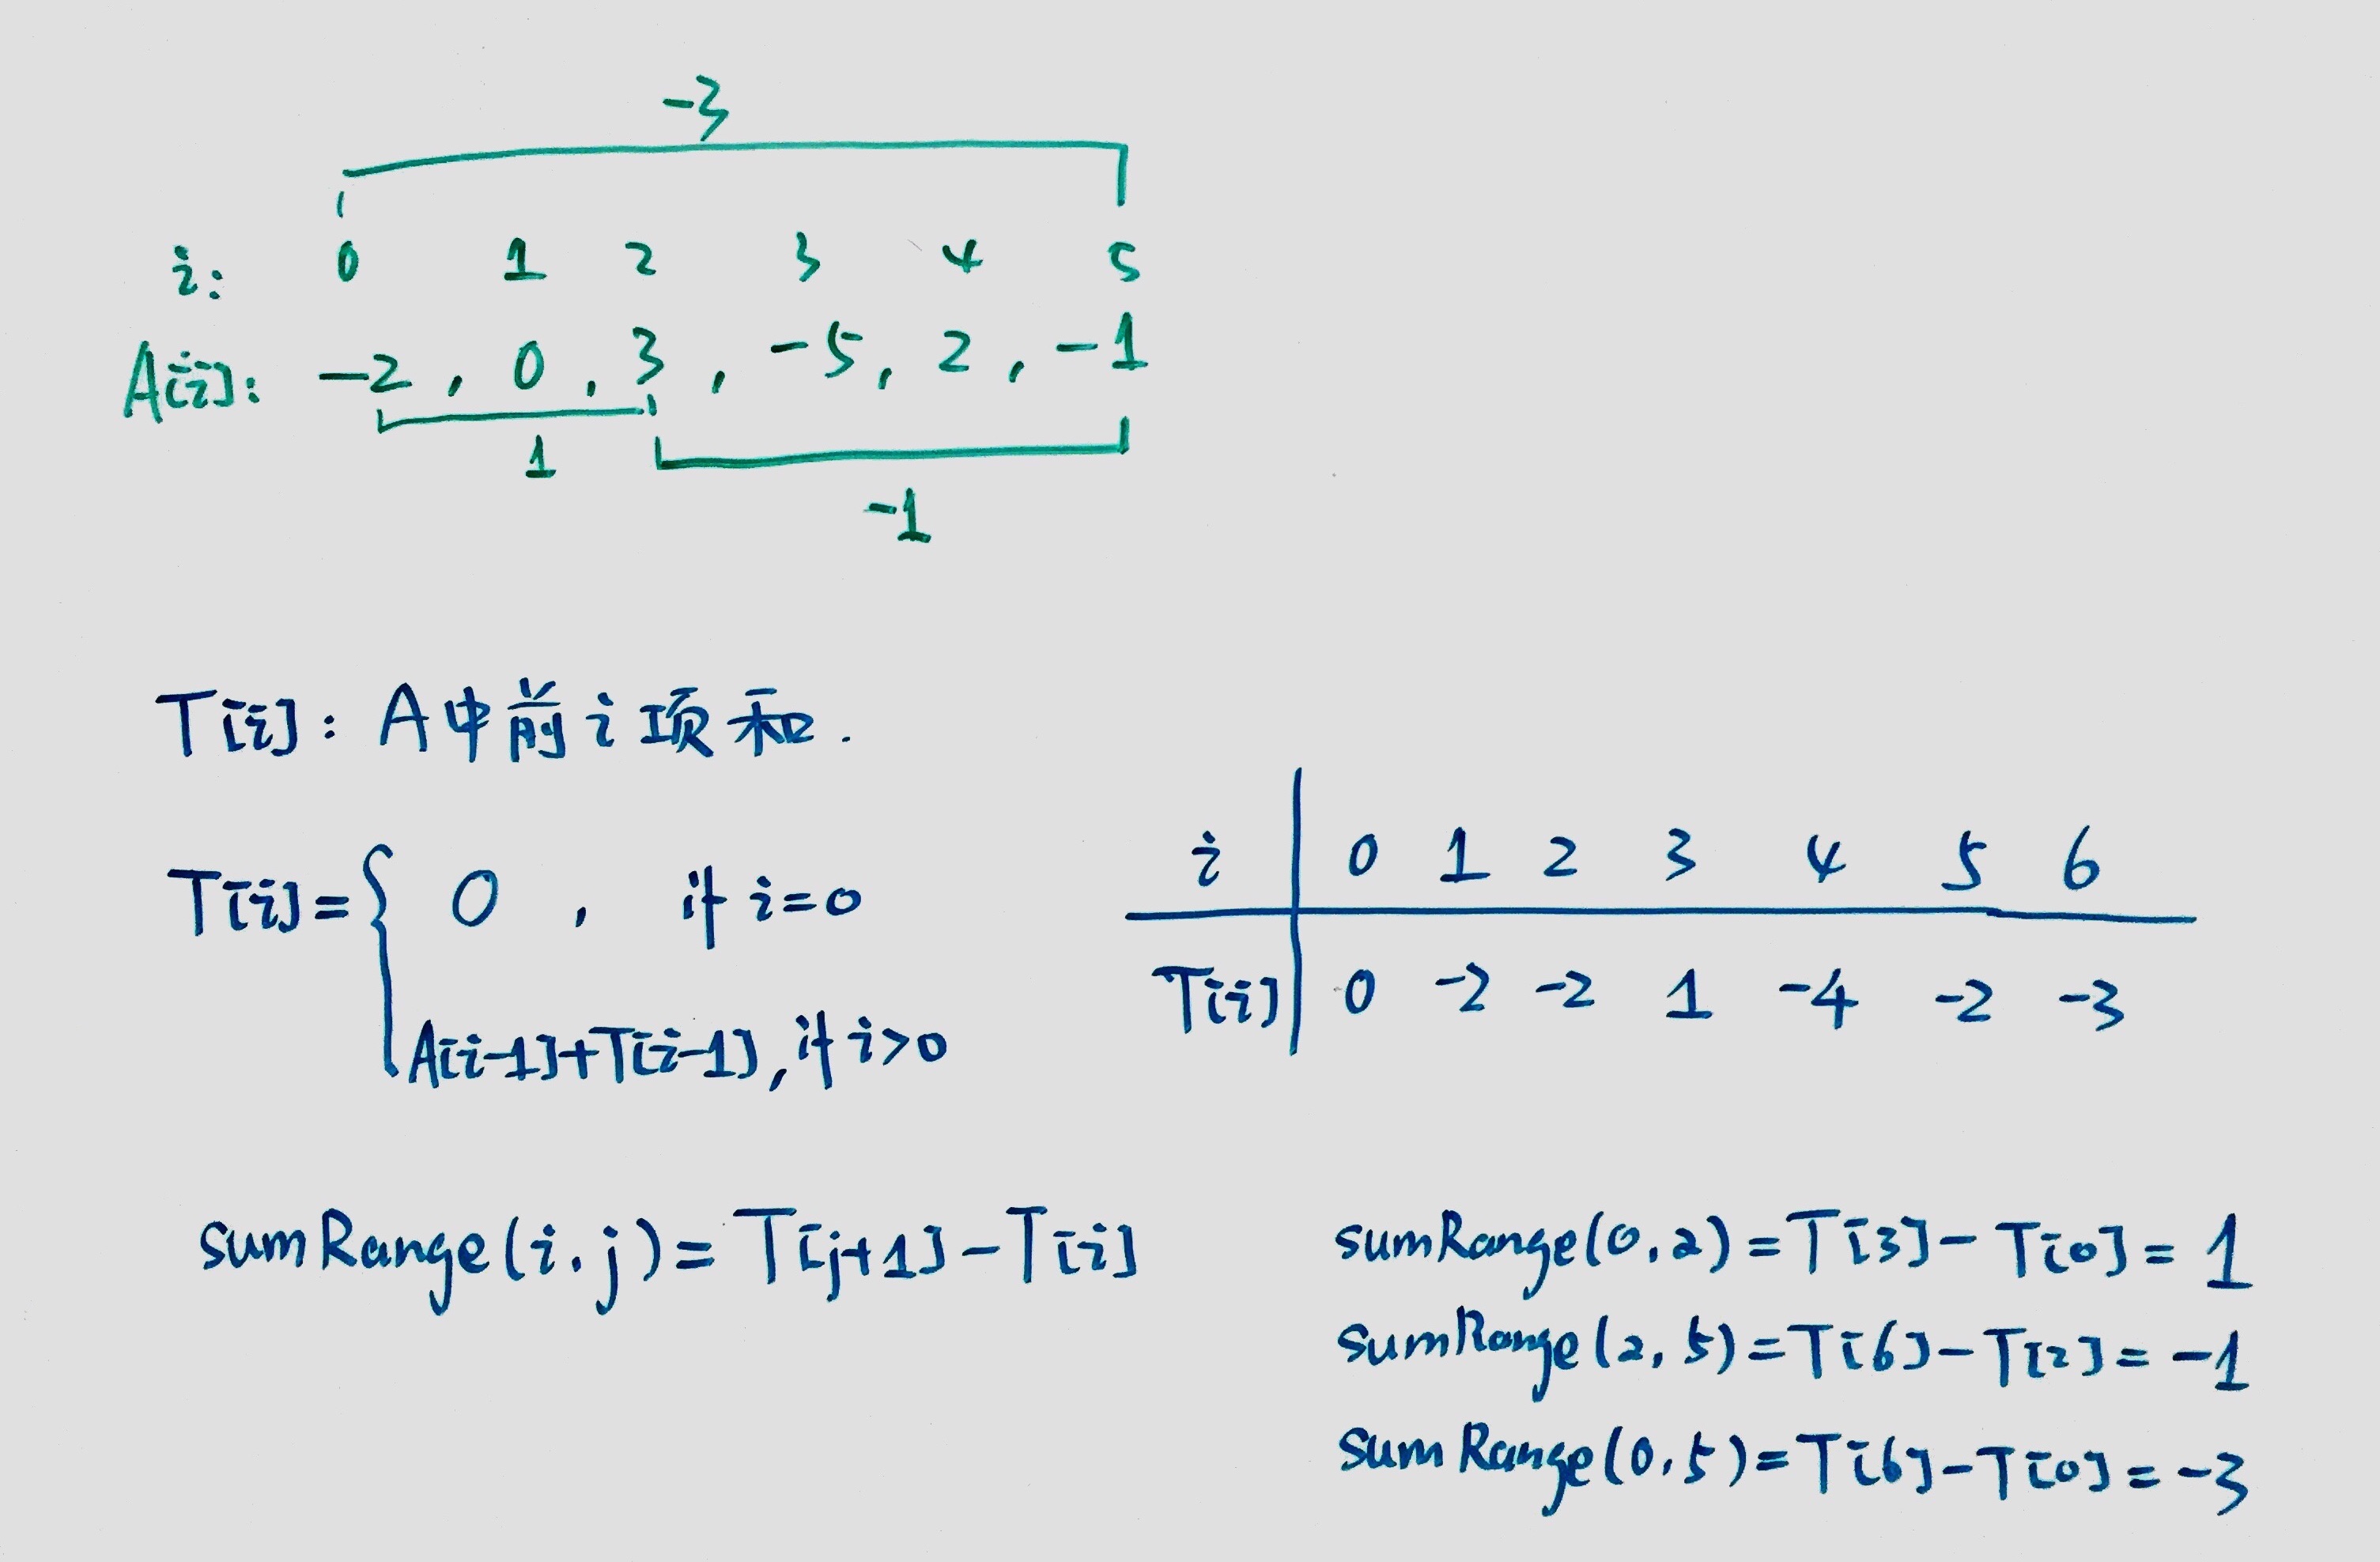 -3
i: 0 1 2 3 4 5
A[i]: -2, 0, 3, -5, 2, -1
1
-1
T[i]: A中前i项和.
T[i]={ 0 , if i=0
A[i-1]+T[i-1], if i>0
i 0 1 2 3 4 5 6
T[i] 0 -2 -2 1 -4 -2 -3
sumRange(i,j)=T[j+1]-T[i]
sumRange(0,2)=T[3]-T[0]=1
sumRange(2,5)=T[6]-T[2]=-1
sumRange(0,5)=T[6]-T[0]=-3